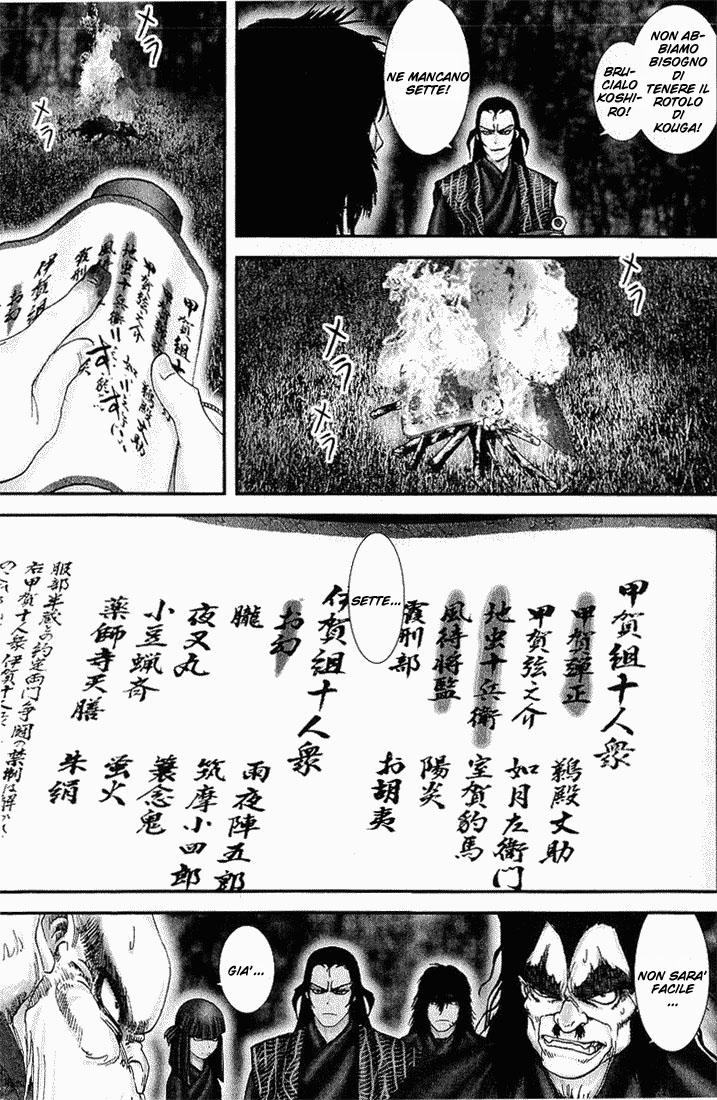 NON AB-
BIAMO
BISOGNO
DI
TENERE IL
ROTOLO
DI
KOUGA!
BRU-
CIALO
KOSHI-
RO!
NE MANCANO
SETTE!
メラ
メラ
メラ
メラ
甲賀組十
甲賀弦之介
地虫十兵衛
風待
霞刑
鵜殿丈助
伊賀組
お幻
SETTE...
甲賀組十人衆
甲賀弾正
甲賀弦之介
地虫十兵衛
風待将監
霞刑部
鵜殿丈助
如月左衛門
室賀豹馬
陽炎
お胡夷
伊賀組十人衆
お幻
朧
夜叉丸
小豆蝋斎
薬師寺天膳
雨夜陣五郎
筑摩小四郎
蓑念鬼
蛍火
朱絹
服部半蔵との約定両門争闘の禁制は解かれ
右甲賀十人衆伊賀十人
NON SARA'
FACILE
...
GIA'...